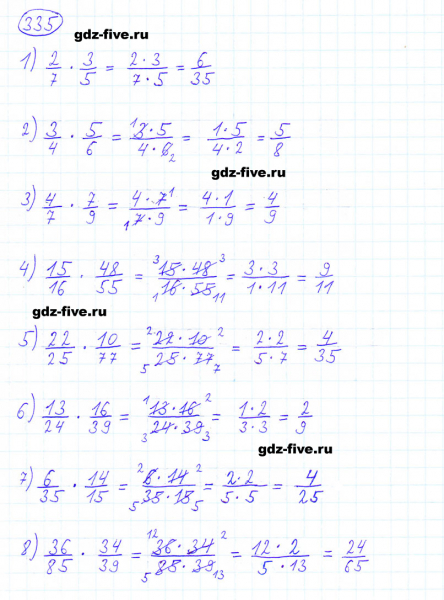 335
gdz-five.ru
1) 2/7 · 3/5 = 2·3/7·5 = 6/35
2) 3/4 · 5/6 = ¹3·5/4·6₂ = 1·5/4·2 = 5/8
gdz-five.ru
3) 4/7 · 7/9 = 4·7¹/₁7·9 = 4·1/1·9 = 4/9
4) 15/16 · 48/55 = ³15·48³/₁16·55₁₁ = 3·3/1·11 = 9/11
gdz-five.ru
5) 22/25 · 10/77 = ²22·10²/₅25·77₇ = 2·2/5·7 = 4/35
6) 13/24 · 16/39 = ¹13·16²/₃24·39₃ = 1·2/3·3 = 2/9
gdz-five.ru
7) 6/35 · 14/15 = ²6·14²/₅35·15₅ = 2·2/5·5 = 4/25
8) 36/85 · 34/39 = ¹²36·34²/₅85·39₁₃ = 12·2/5·13 = 24/65